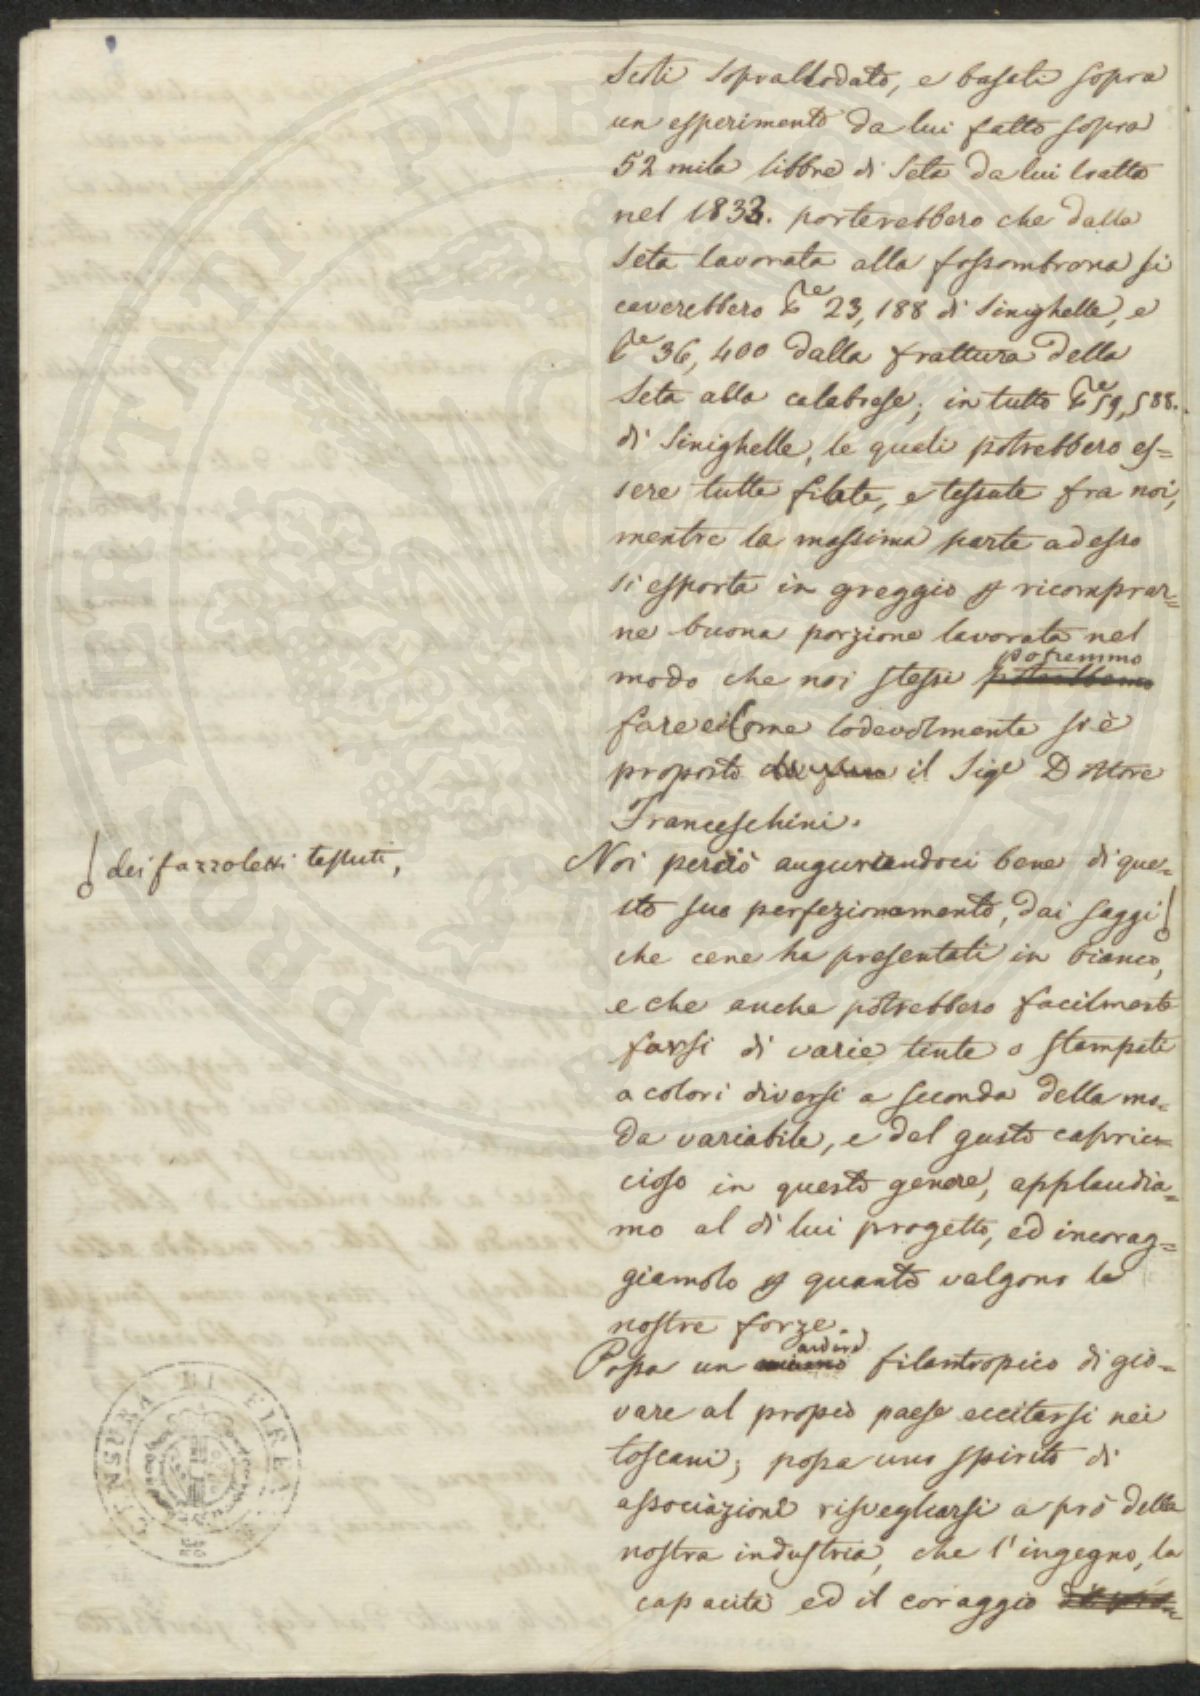 Scoti sopralodato, e basati sopra
un esperimento da lui fatto sopra
52 mila libbre di seta da lui tratta
nel 1833. porterebbero che dalla
seta lavorata alla fossombrona si
caverebbero 23,188 di sinighelle, e
36,400 dalla trattura della
seta alla calabrese; in tutto 59,588.
di sinighelle, le quali potrebbero es=
sere tutte filate, e tessute fra noi,
mentre la massima parte adesso
si esporta in greggio p ricomprar=
ne buona porzione lavorata nel
modo che noi stessi potremmo
fare e come lodevolmente si è
proposto di fare il Sigr Dottore
Franceschini.
dei fazzoletti tessuti,
Noi perciò auguriandoci bene di que=
sto suo perfezionamento, dai saggi
che cene ha presentati in bianco,
e che anche potrebbero facilmente
farsi di varie tinte o stampati
a colori diversi a seconda della mo=
da variabile, e del gusto capric=
cioso in questo genere, applaudia=
mo al di lui progetto, ed incorag=
giamolo p quanto valgono le
nostre forze.
Possa un ardire filantropico di gio=
vare al propio paese eccitarsi nei
toscani; possa uno spirito di
associazione risvegliarsi a prò della
nostra industria, che l'ingegno, la
capacità ed il coraggio
PROSPERITATI PUBLICAE
CENSURA DI FIRENZE